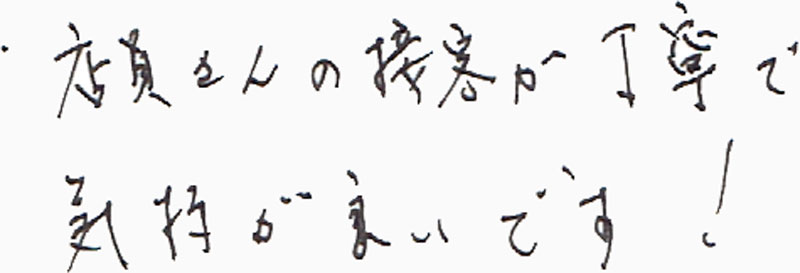 ・店員さんの接客が丁寧で
気持が良いです!